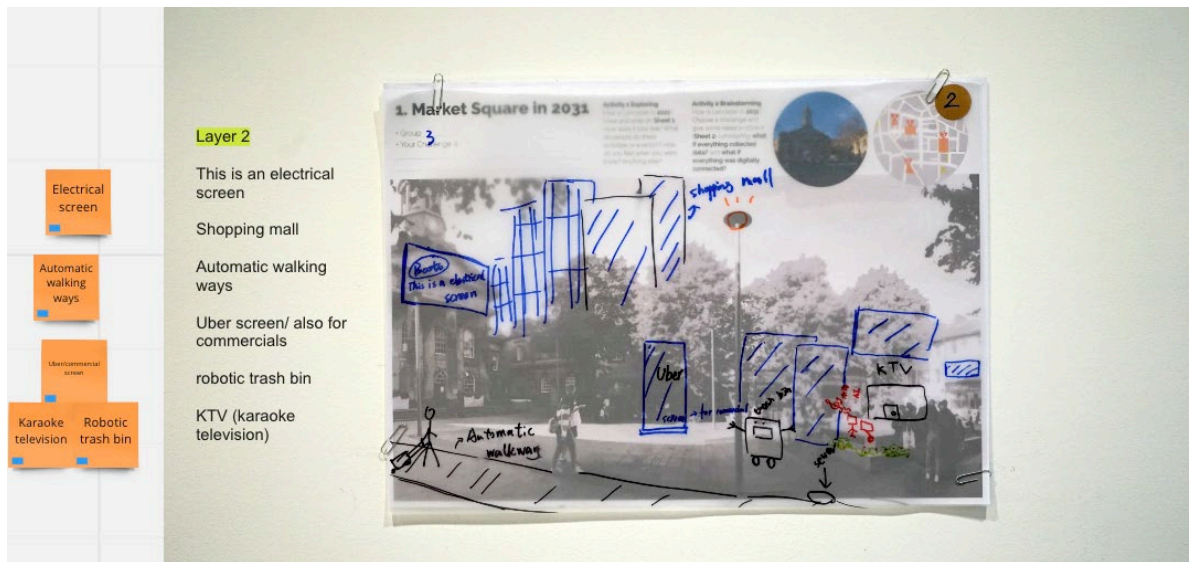 Electrical
screen
Automatic
walking
ways
Uber/commercial
screen
Karaoke
television
Robotic
trash bin
Layer 2
This is an electrical
screen
Shopping mall
Automatic walking
ways
Uber screen/ also for
commercials
robotic trash bin
KTV (karaoke
television)
1. Market Square in 2031
• Group 3
• Your Challenge
Activity 1 Exploring
Activity 2 Brainstorming
if everything collected
data? and what if
everything was digitally
connected?
2
shopping mall
This is a electrical
screen
Uber
screen → for
trash bin
KTV
Automatic
walkway